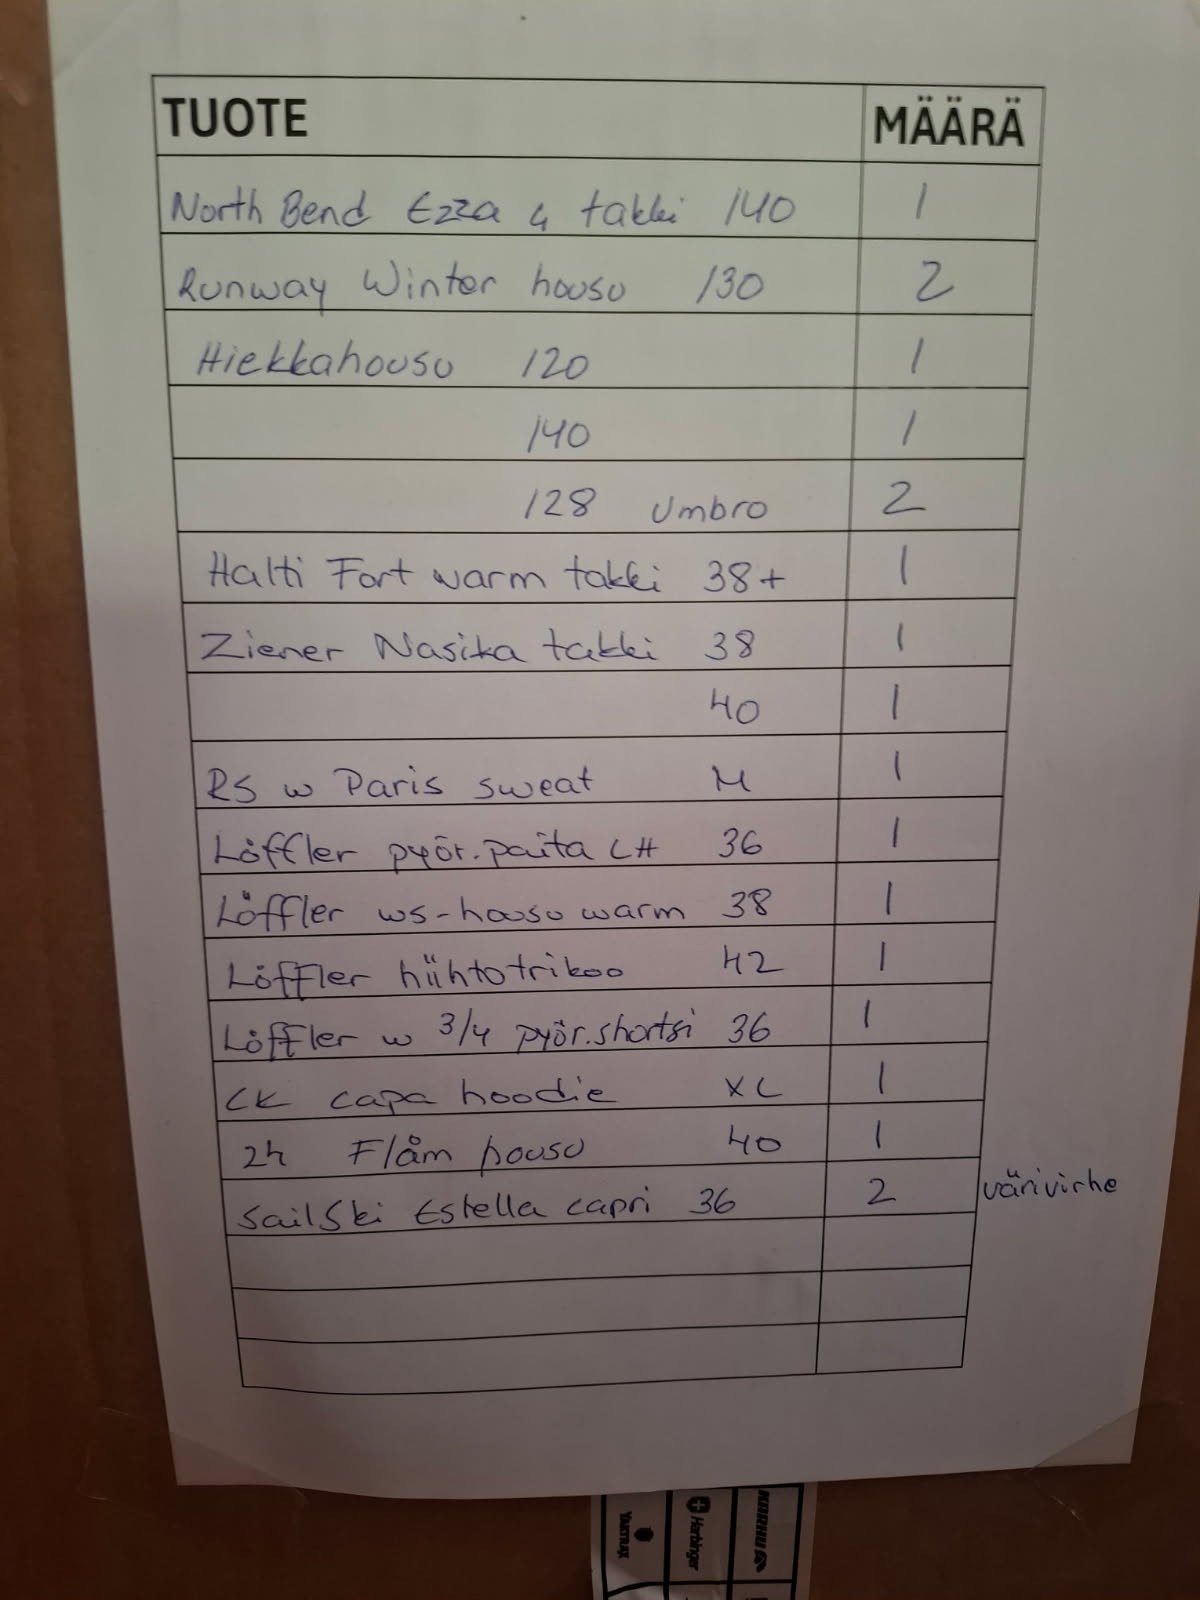 TUOTE MÄÄRÄ
North Bend Ezza 4 takki 140 1
Runway Winter housu 130 2
Hiekkahousu 120 1
140 1
128 Umbro 2
Halti Fort warm takki 38+ 1
Ziener Nasika takki 38 1
40 1
RS w Paris sweat M 1
Löffler pyör.paita LH 36 1
Löffler ws-housu warm 38 1
Löffler hiihtotrikoo 42 1
Löffler w 3/4 pyör.shortsi 36 1
CK capa hoodie XL 1
24 Flåm housu 40 1
SailSki Estella capri 36 2 värivirhe
KARHU
Harbinger
YAKTRAX